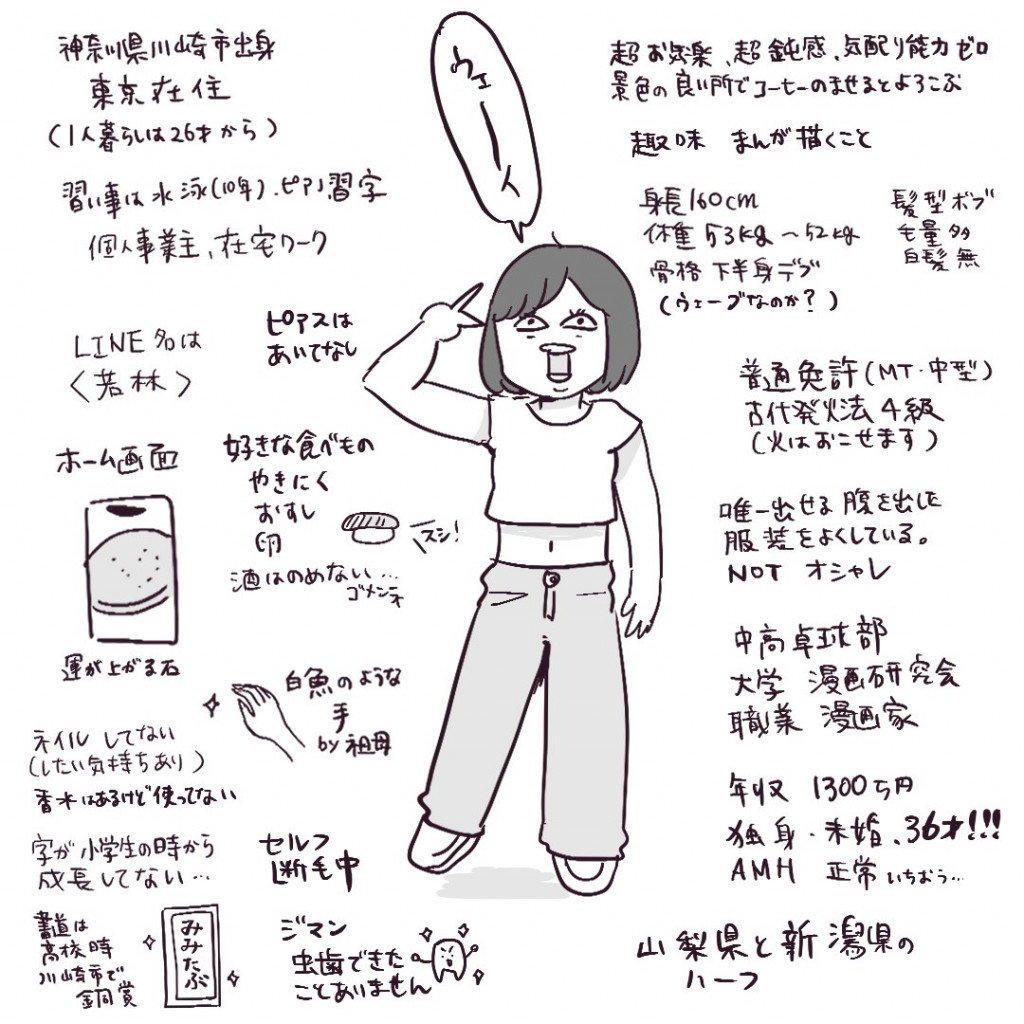 ウェーイ
神奈川県川崎市出身
東京在住
(1人暮らしは26才から)
習い事は水泳(10年)、ピアノ習字
個人事業主、在宅ワーク
LINE名は
〈若林〉
ピアスは
あいてなし
ホーム画面
運が上がる石
好きな食べもの
やきにく
おすし
卵
スシ!
酒はのめない…
ゴメンネ
白魚のような
手
by 祖母
ネイルしてない
(したい気持ちあり)
香水はあるけど使ってない
字が小学生の時から
成長してない…
セルフ
断毛中
書道は
高校時
川崎市で
銅賞
みみたぶ
ジマン
虫歯できた
ことありません
超お気楽、超鈍感、気配り能力ゼロ
景色の良い所でコーヒーのませるとよろこぶ
趣味 まんが描くこと
身長160cm
体重53kg~52kg
骨格 下半身デブ
(ウェーブなのか?)
髪型ボブ
毛量多
白髪無
普通免許(MT・中型)
古代発火法4級
(火はおこせます)
唯一出せる腹を出した
服装をよくしている。
NOT オシャレ
中高卓球部
大学 漫画研究会
職業 漫画家
年収 1300万円
独身・未婚、36才!!!
AMH 正常 いちおう…
山梨県と新潟県の
ハーフ